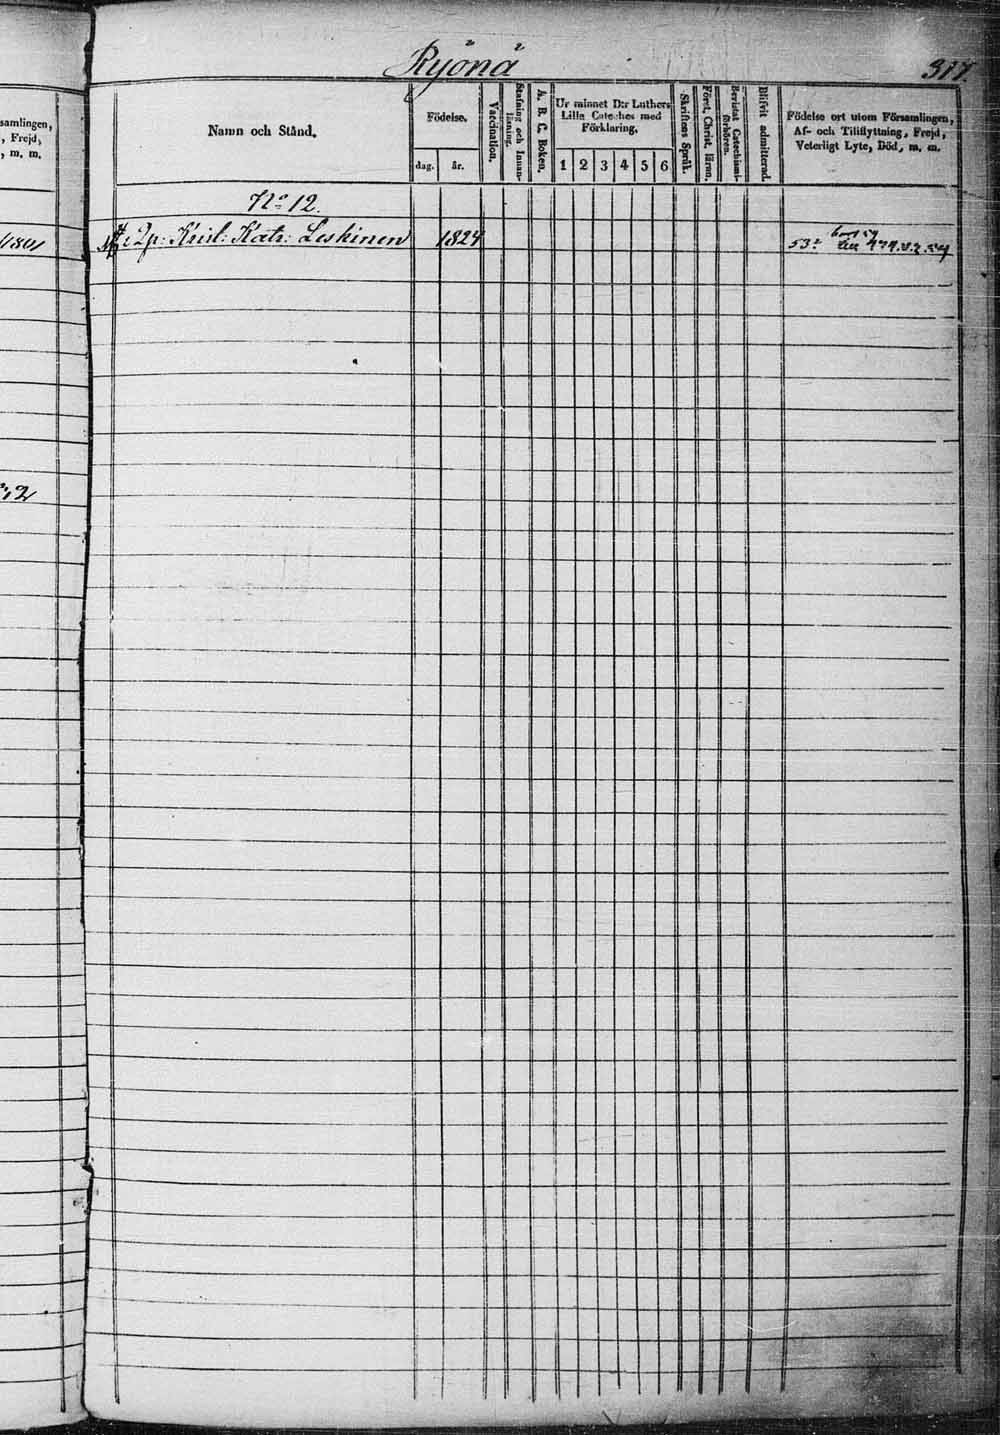 Ryönä
317.
samlingen,
, Frejd,
, m. m.
1801
12
Namn och Stånd.
Födelse.
dag. år.
Vaccination.
Stafning och Innan-
läsning.
A. B. C. Boken.
Ur minnet D:r Luthers
Lilla Cateches med
Förklaring.
1 2 3 4 5 6
Skriftens Språk.
Först. Christ. läran.
Bevistat Catechismi-
förhören.
Blifvit admitterad.
Födelse ort utom Församlingen,
Af- och Tillflyttning, Frejd,
Veterligt Lyte, Död, m. m.
No 12.
Kristl: Katr: Leskinen 1824 53